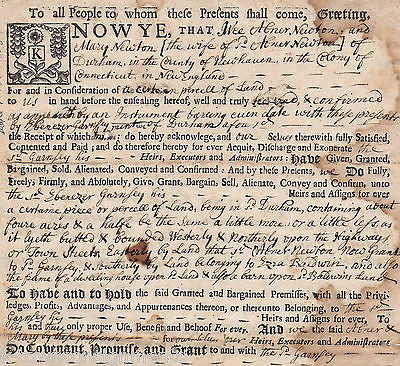 To all People to whom these Presents shall come, Greeting.
KNOW YE, THAT Wee Abner Newton, and
Mary Newton [the wife of sd Abner Newton] of
Durham, in the County of Newhaven, in the Colony of
Connecticut, in New England
For and in Consideration of a certain percele of Land
to us in hand before the ensealing hereof, well and truly & confirmed
by an Instrument bearing even date with these presents
by Ebenezer Garnsey of Durham
the Receipt of whereof do hereby acknowledge, and our Selves therewith fully Satisfied,
Contented and Paid; and do therefore hereby for ever Acquit, Discharge and Exonerate the
sd Garnsey his Heirs, Executors and Administrators: Have Given, Granted,
Bargained, Sold, Alienated, Conveyed and Confirmed: And by these Presents, we Do Fully,
Freely, Firmly, and Absolutely, Give, Grant, Bargain, Sell, Alienate, Convey and Confirm, unto
the sd Ebenezer Garnsey his Heirs and Assigns for ever
a certaine piece or percele of Land, being in sd Durham, containing about
foure acres & a halfe be the same a little more, or a little less, as
it lyeth butted & bounded Westerly & Northerly upon the Highways
or Town Streets, Easterly by Land that sd Abner Newton Now Grants
to sd Garnsey, & Southerly by Land belonging to Ezra Baldwin, and also
the frame of a dwelling house upon sd Land & also a barn upon sd Baldwins Land
To Have and to Hold the said Granted and Bargained Premisses, with all the Privi-
ledges, Profits, Advantages, and Appurtenances thereon, or thereunto Belonging, to the sd
Garnsey his Heirs and Assigns for ever. To
his and their only proper Use, Benefit and Behoof For ever. And we the said Abner &
Mary by these presents for our selves our Heirs, Executors and Administrators
Do Covenant, Promise, and Grant to and with the sd Garnsey